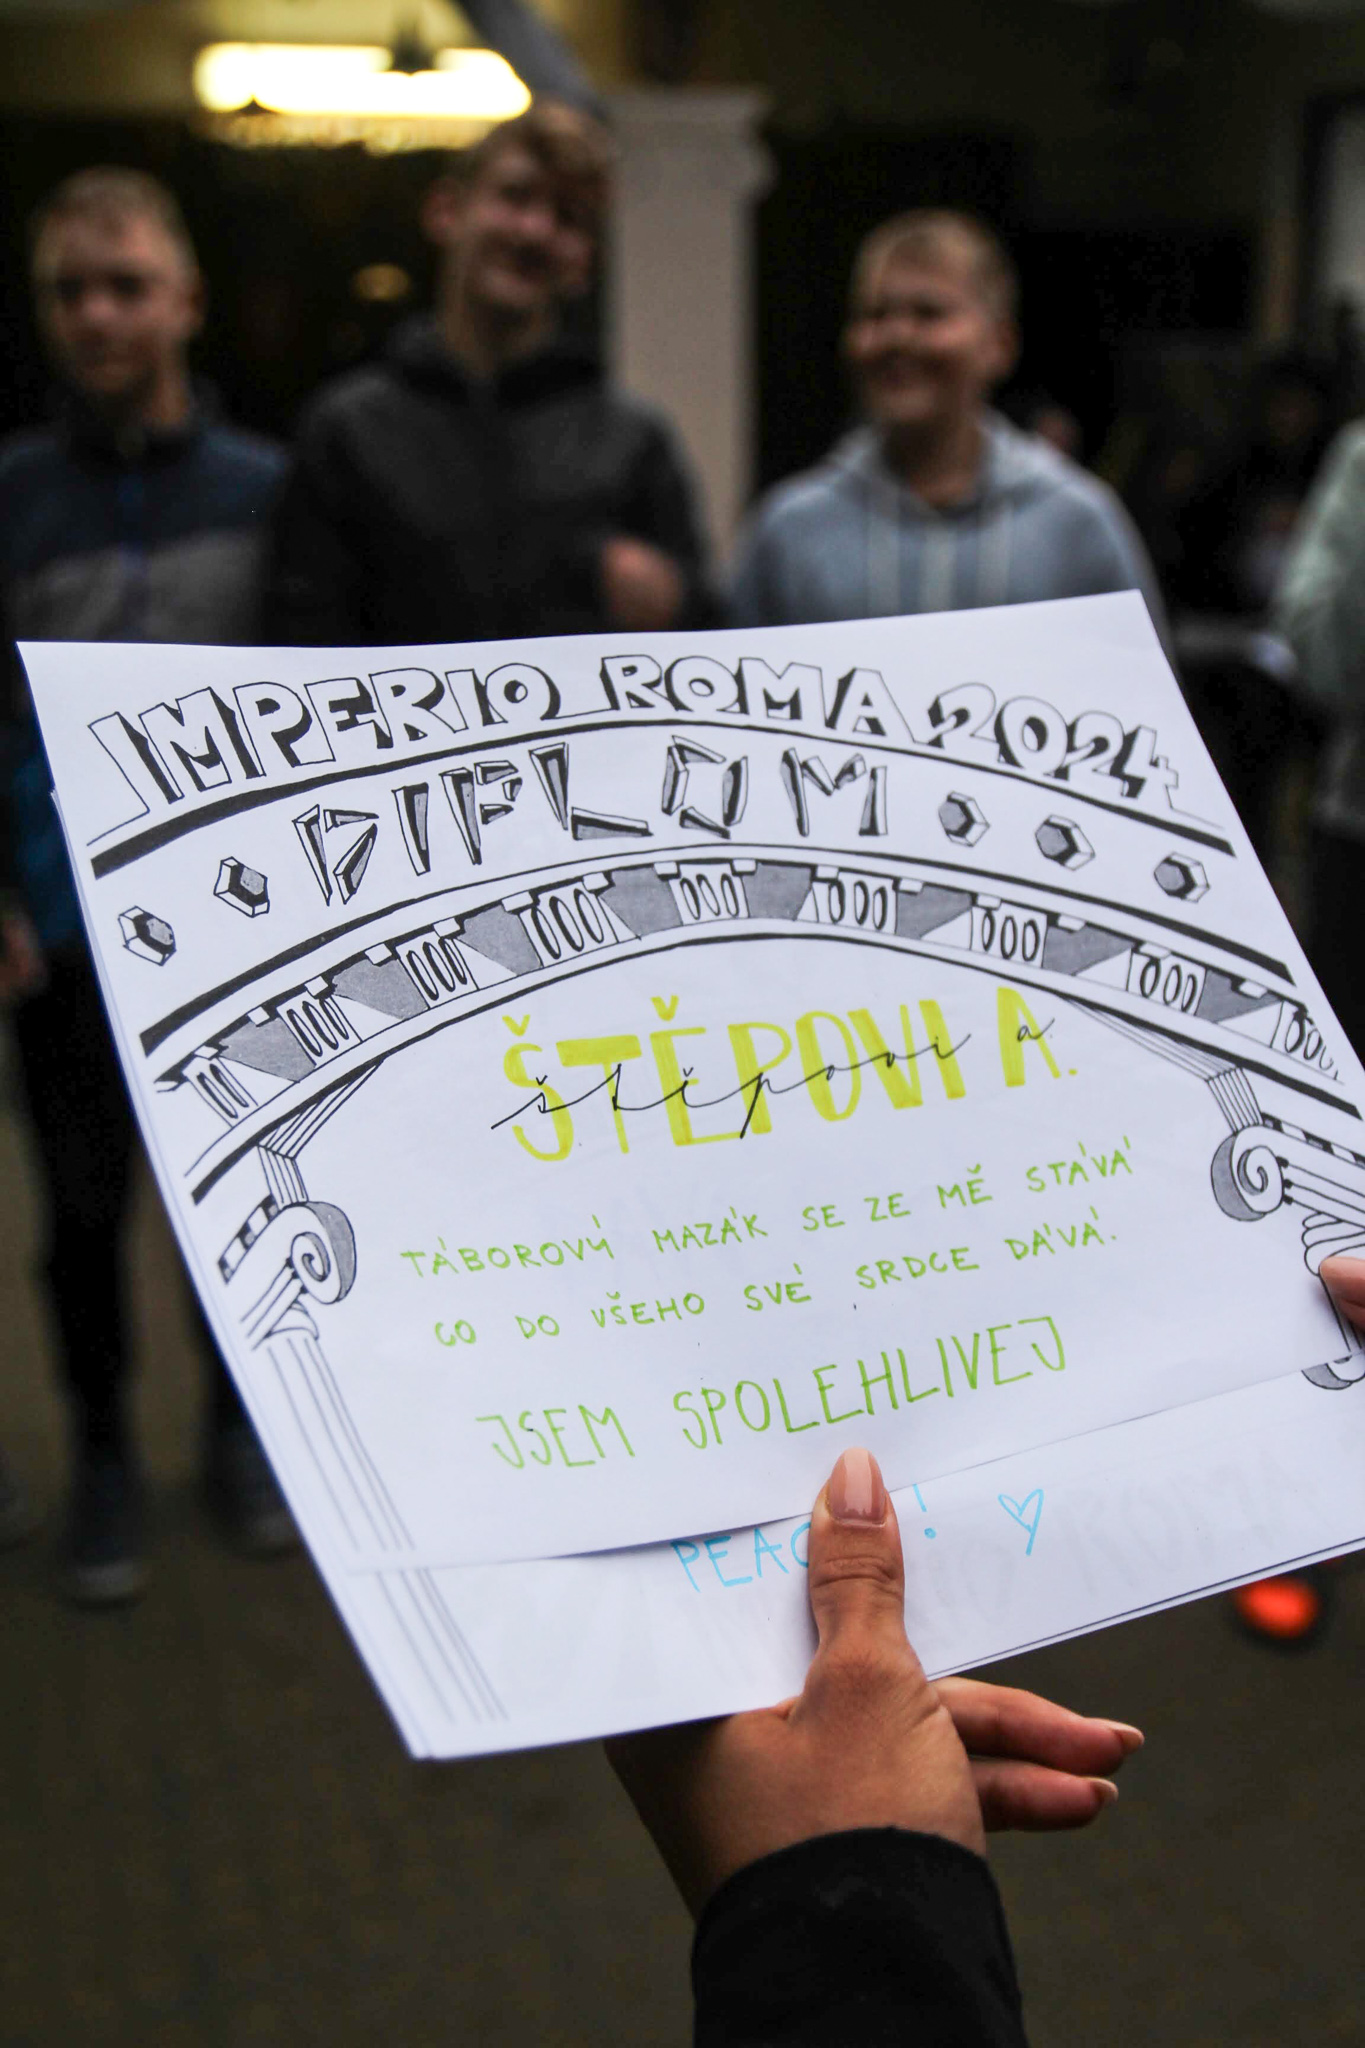 IMPERIO ROMA 2024
DIPLOM
ŠTĚPOVI A.
štěpovi a.
TÁBOROVÝ MAZÁK SE ZE MĚ STÁVÁ
CO DO VŠEHO SVÉ SRDCE DÁVÁ.
JSEM SPOLEHLIVEJ